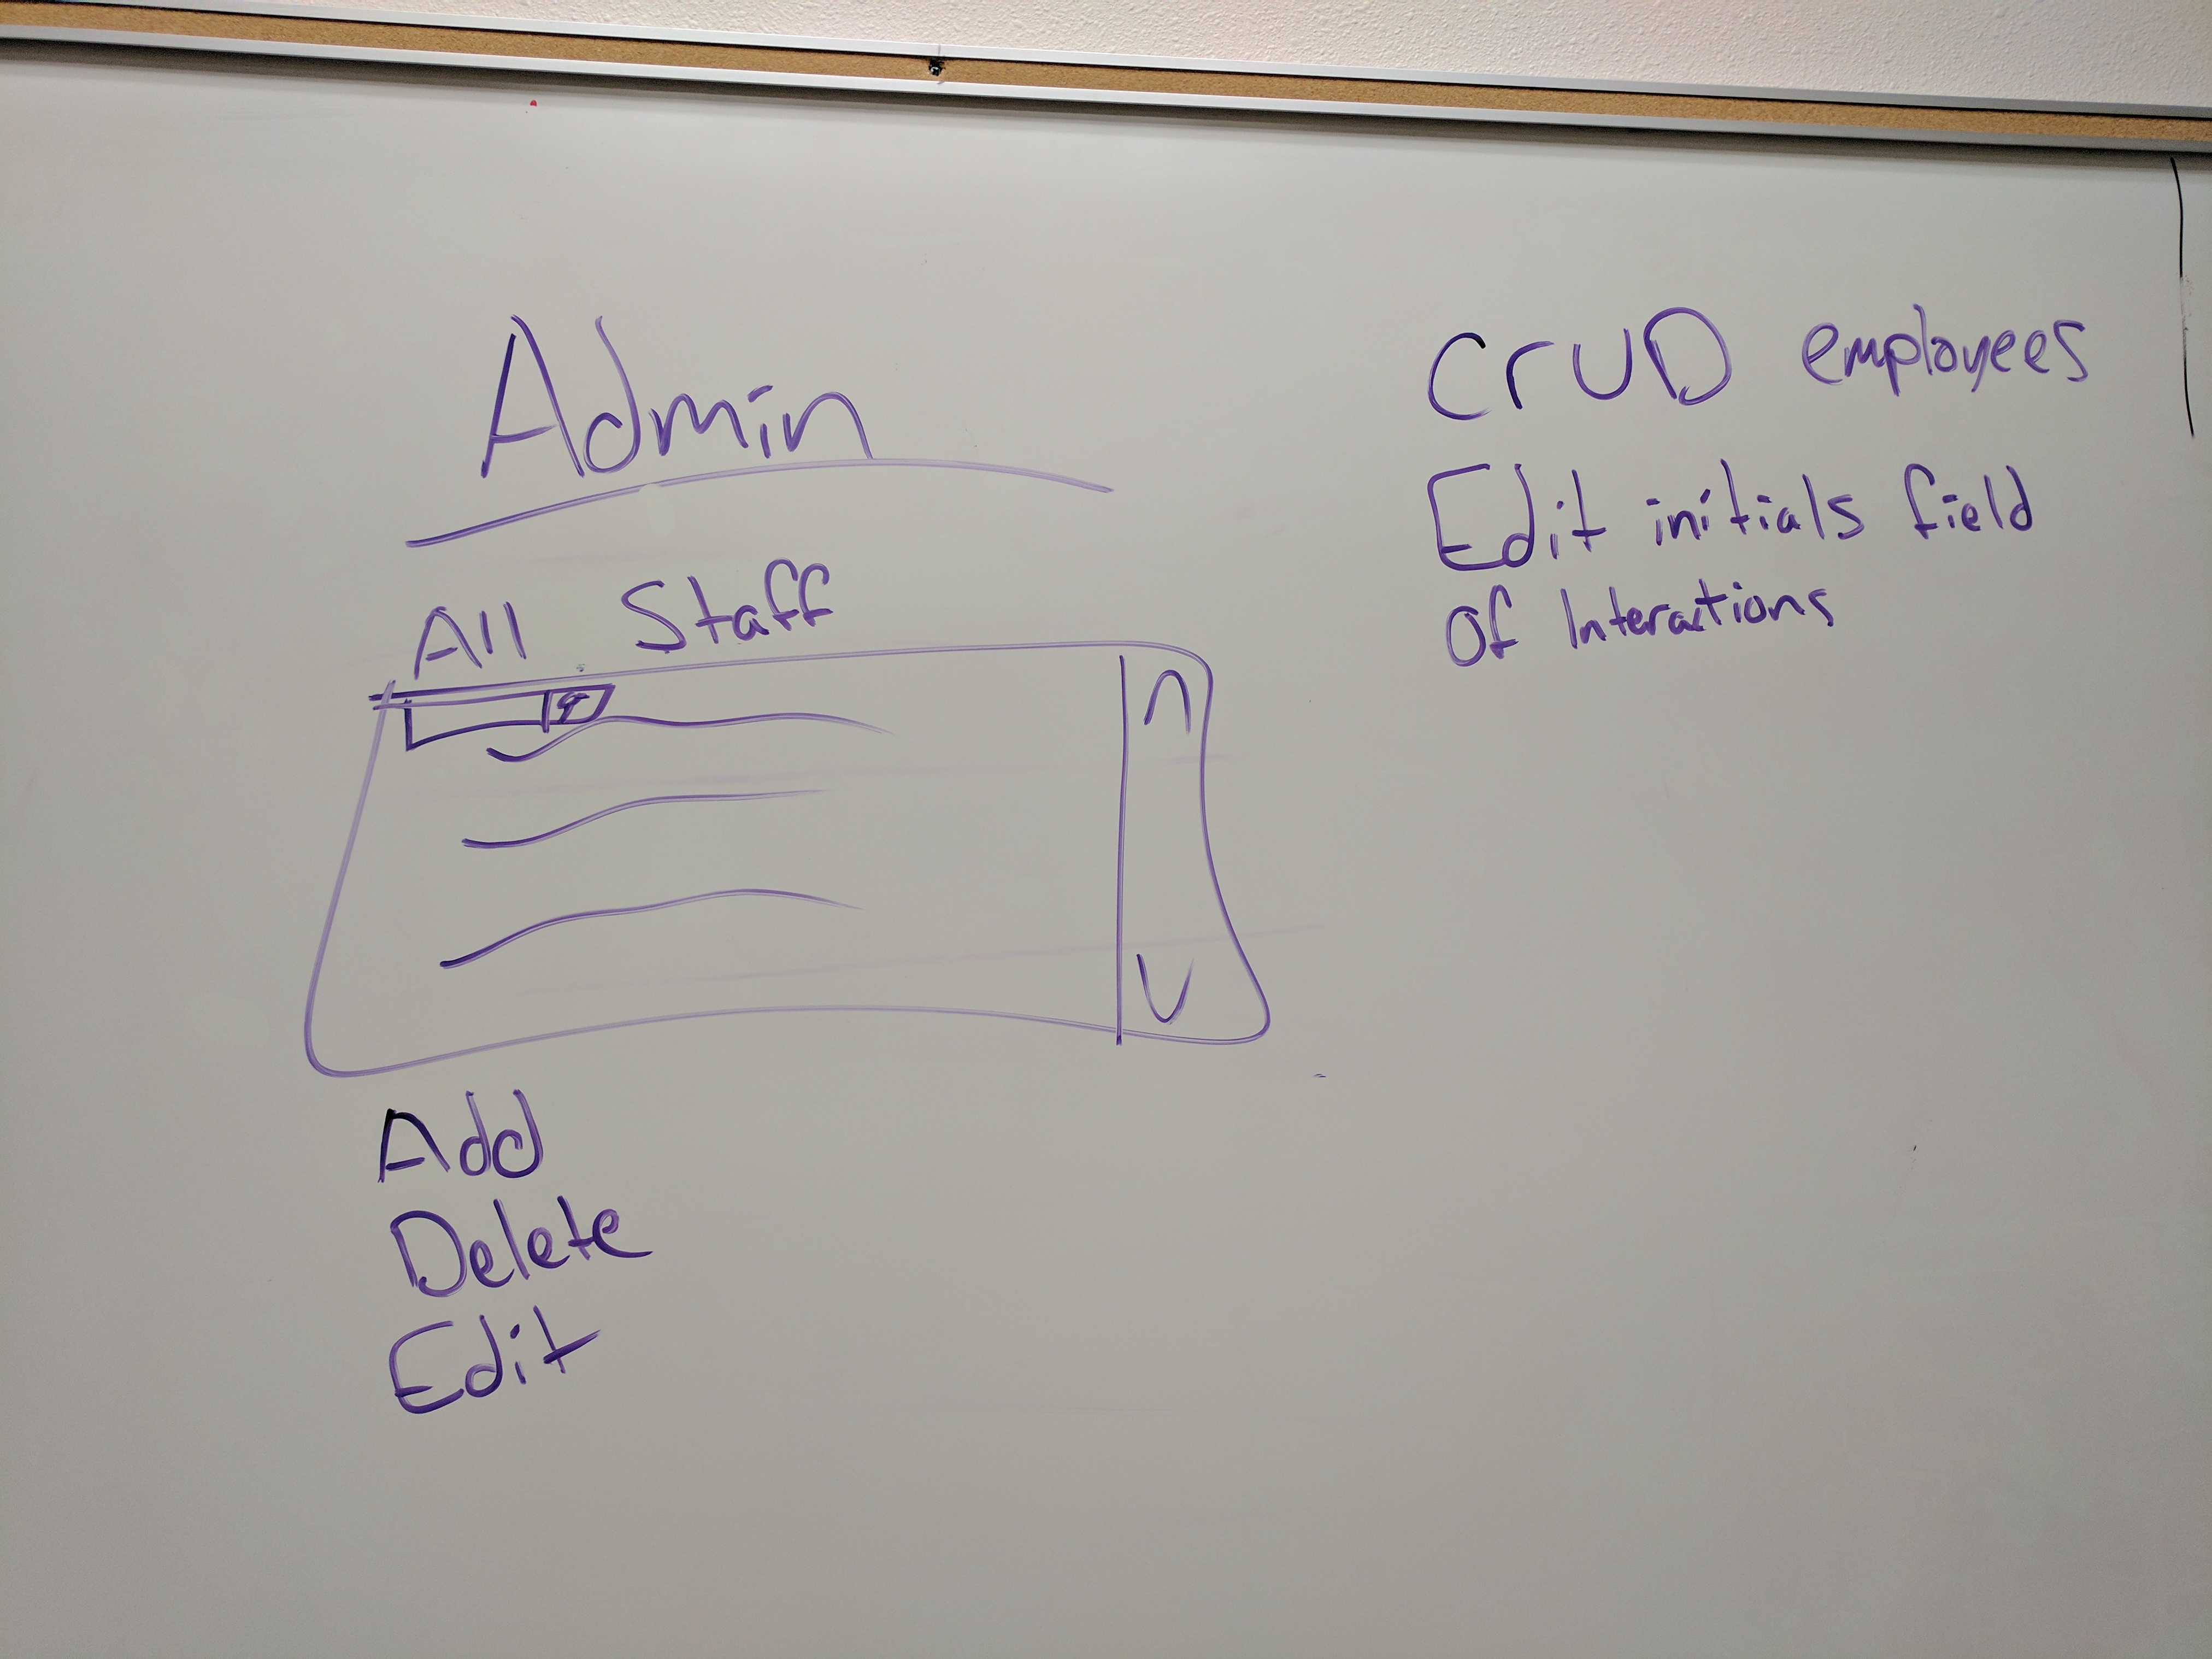 Admin
All Staff
Add
Delete
Edit
CrUD employees
Edit initials field
Of Interactions